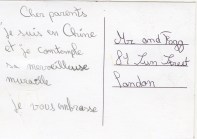 Cher parents
je suis en Chine
et je contemple
sa merveilleuse
muraille
je vous embrasse
Mr and Fogg
84 Sun Street
London